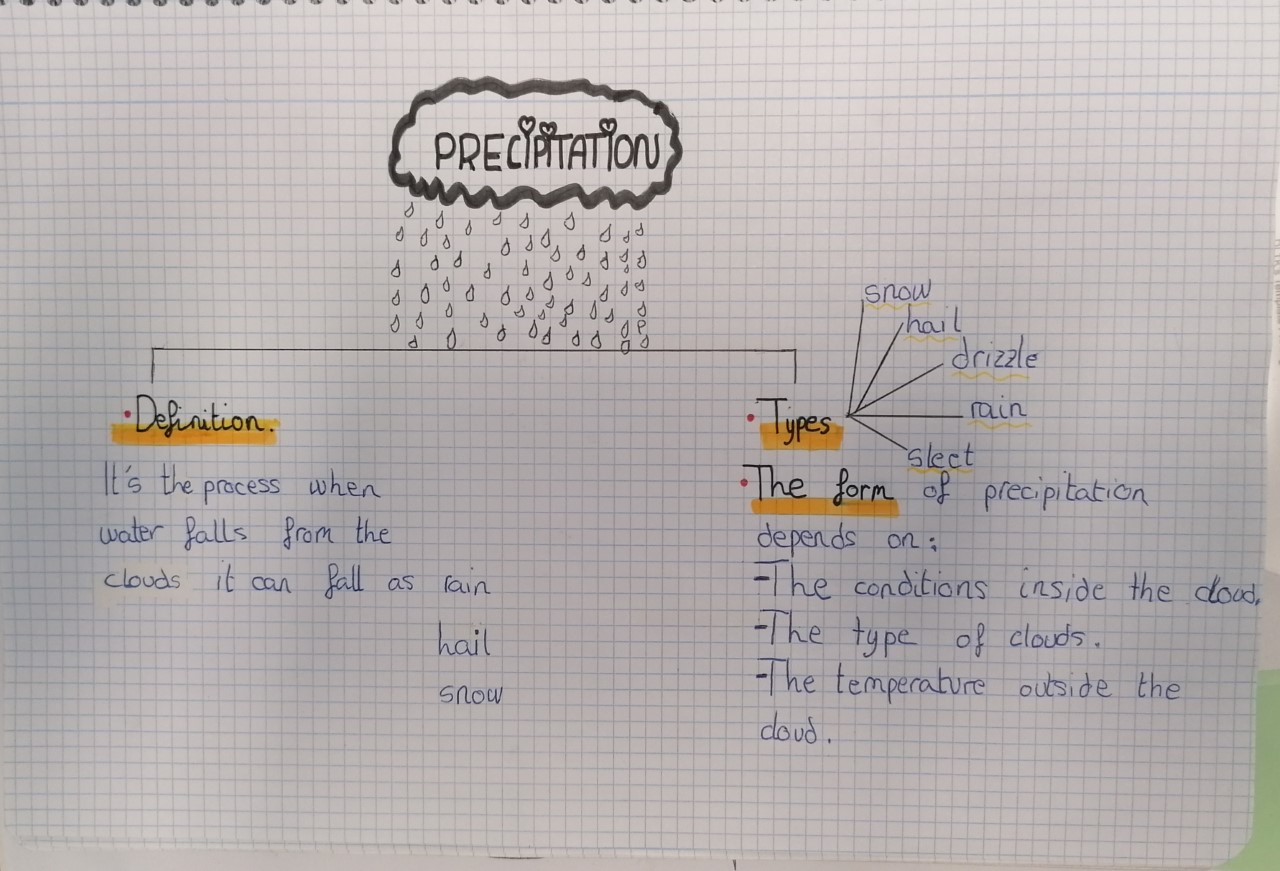 PRECIPITATION
• Definition.
It's the process when
water falls from the
clouds it can fall as rain
hail
snow
• Types
snow
hail
drizzle
rain
sleet
• The form of precipitation
depends on:
-The conditions inside the cloud.
-The type of clouds.
-The temperature outside the
cloud.